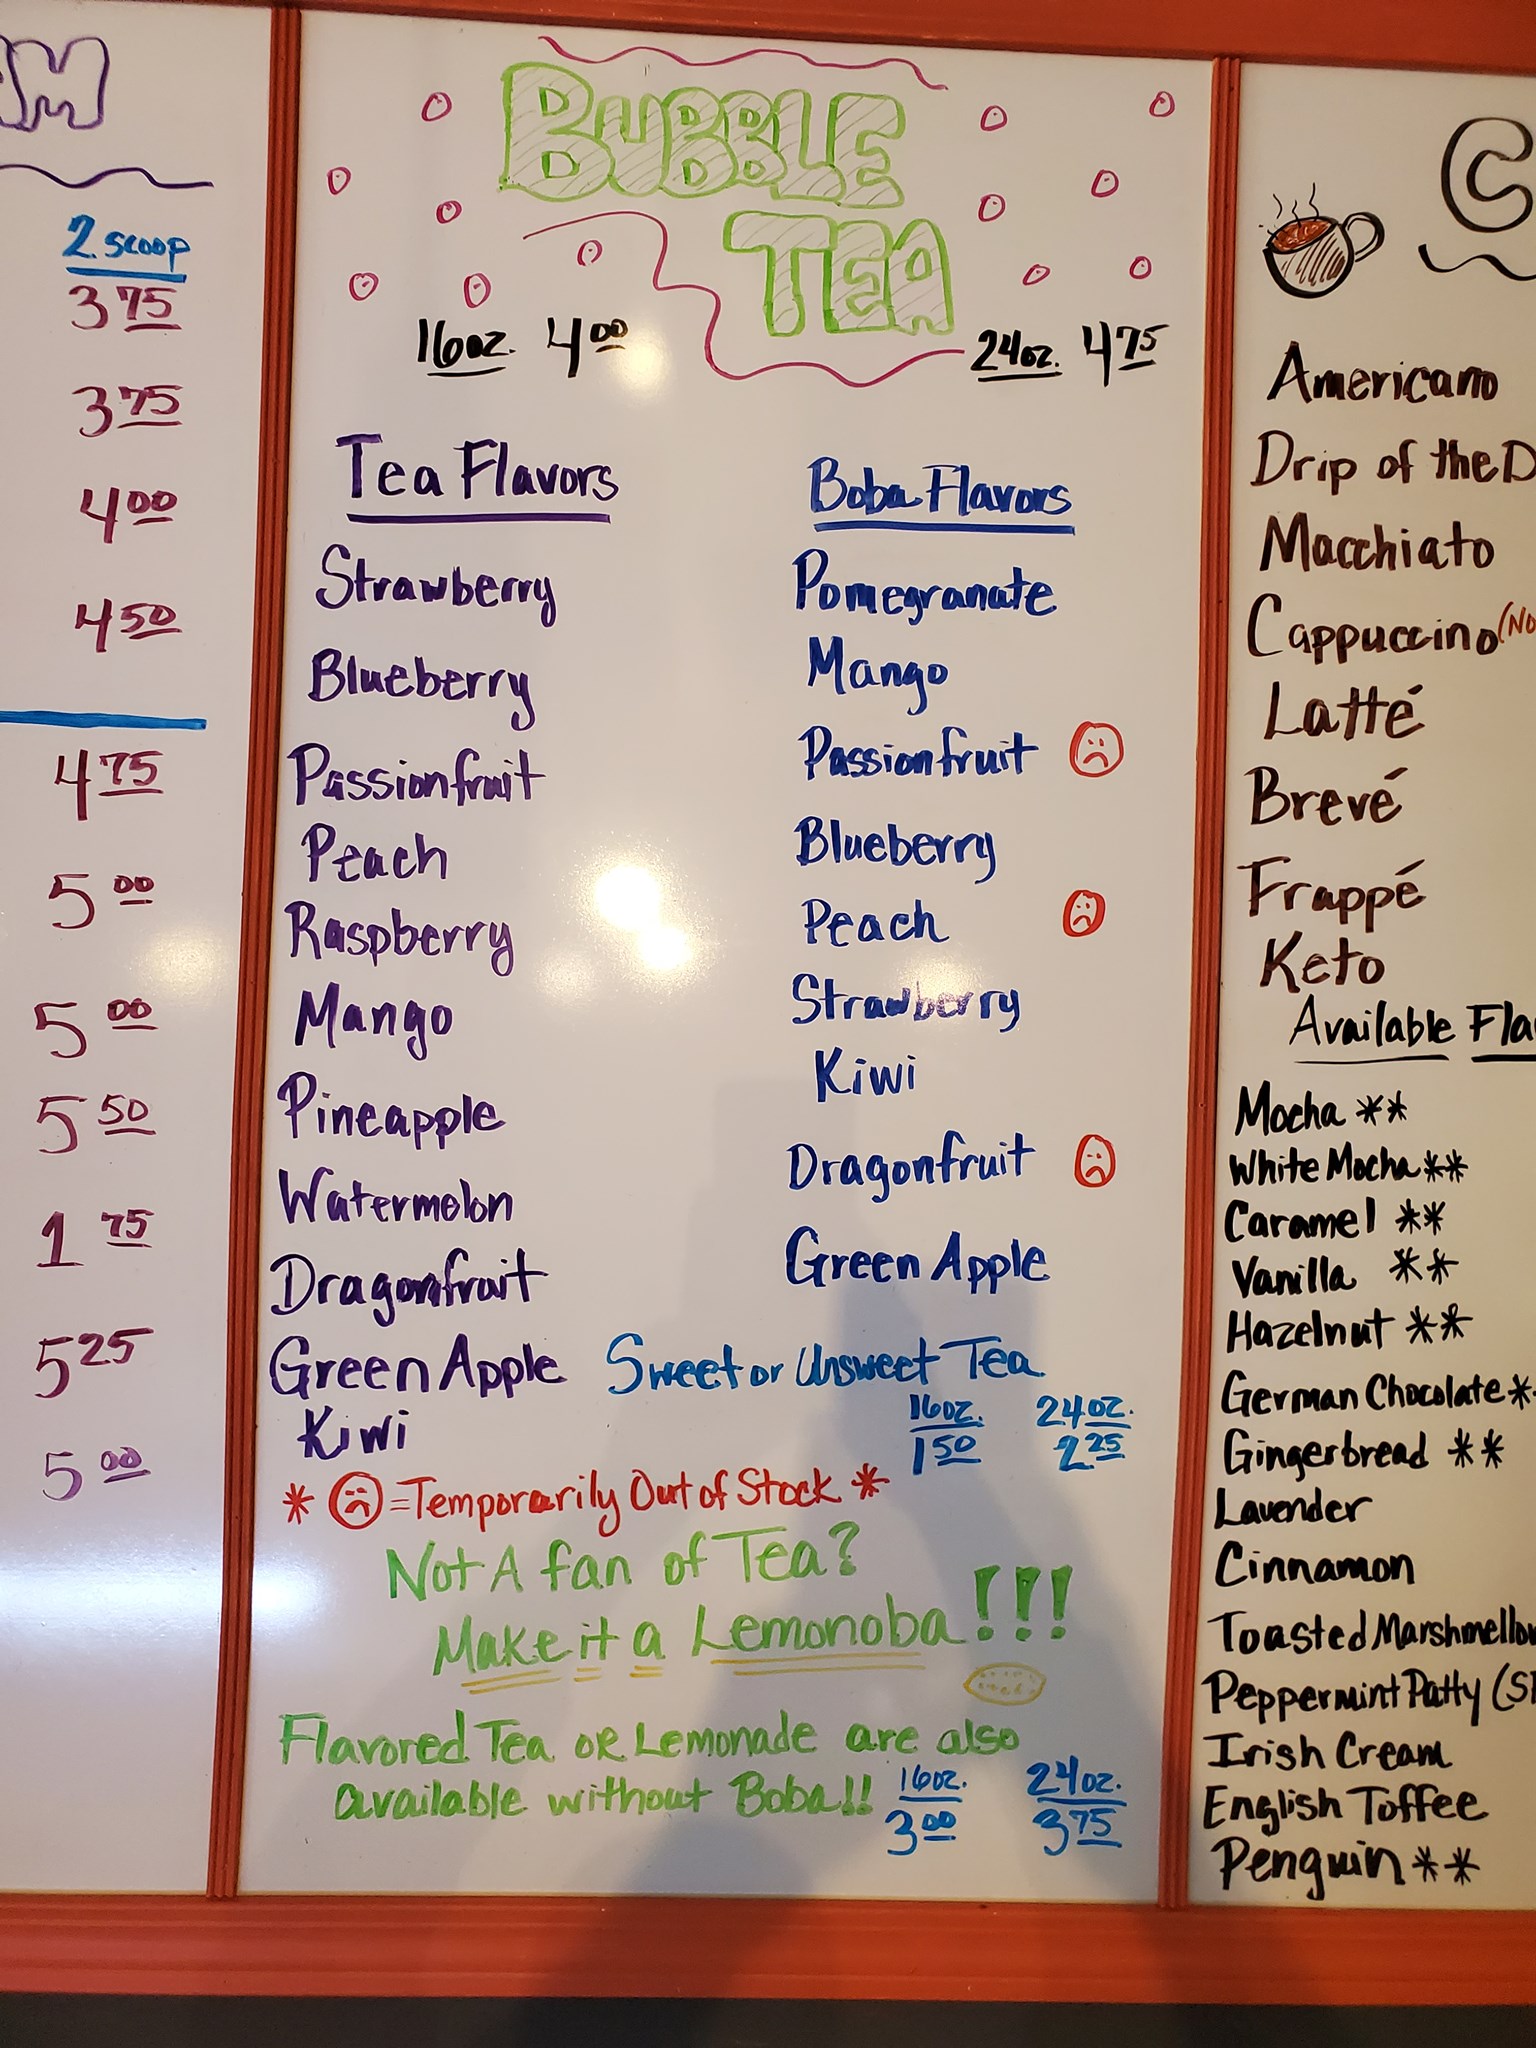 2 scoop
3 75
3 75
4 00
4 50
4 75
5 00
5 00
5 50
1 75
5 25
5 00
BUBBLE
TEA
16oz. 4 00
24oz. 4 75
Tea Flavors
Strawberry
Blueberry
Passionfruit
Peach
Raspberry
Mango
Pineapple
Watermelon
Dragonfruit
Green Apple
Kiwi
Boba Flavors
Pomegranate
Mango
Passionfruit
Blueberry
Peach
Strawberry
Kiwi
Dragonfruit
Green Apple
Sweet or Unsweet Tea
16oz. 24oz.
1 50 2 25
* = Temporarily Out of Stock *
Not A fan of Tea?
Make it a Lemonoba!!!
Flavored Tea OR Lemonade are also
available without Boba!!
16oz. 24oz.
3 00 3 75
Americano
Drip of the D
Macchiato
Cappuccino (No
Latté
Brevé
Frappé
Keto
Available Fla
Mocha **
White Mocha **
Caramel **
Vanilla **
Hazelnut **
German Chocolate *
Gingerbread **
Lavender
Cinnamon
Toasted Marshmellow
Peppermint Patty (S
Irish Cream
English Toffee
Penguin **